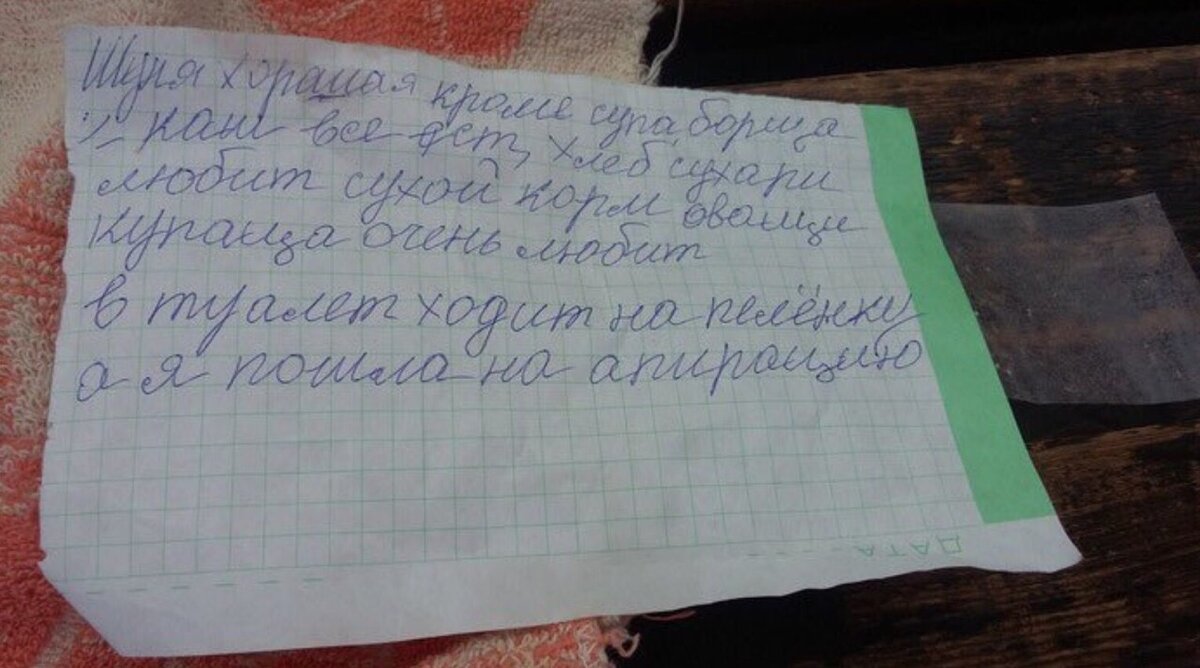 Шуля хорашая кроме супа борща
каш все ест, хлеб сухари
любит сухой корм оващи
купаца очень любит
в туалет ходит на пелёнку
а я пошла на апирацию
ДАТА